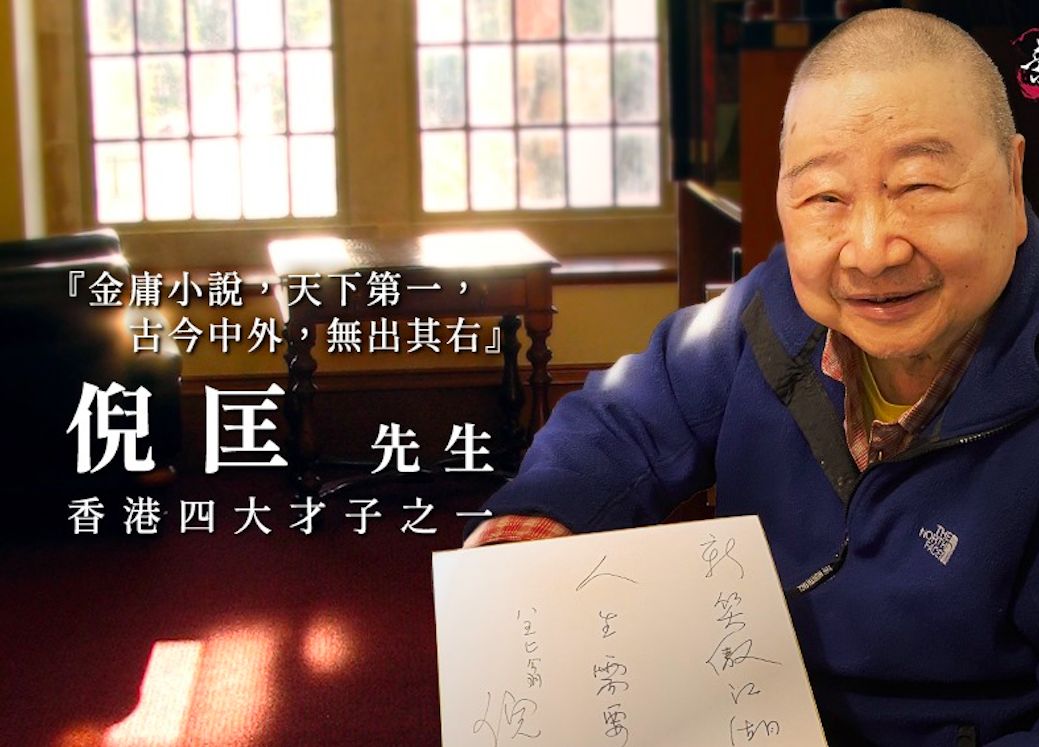 『金庸小說，天下第一，
古今中外，無出其右』
倪匡 先生
香港四大才子之一
新笑傲江湖
人生需要
翁
倪
THE
NORTH
FACE